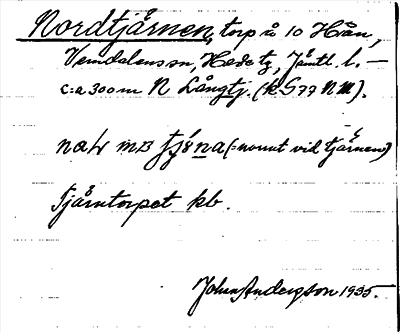 Nordtjärnen, torp å 10 Hån,
Vemdalens sn, Hede tg, Jämtl. l. —
c:a 300 m N Långtj. (k G 77 NM).
(= norrut vid tjärnen)
Tjärntorpet kb.
John Andersson 1935.